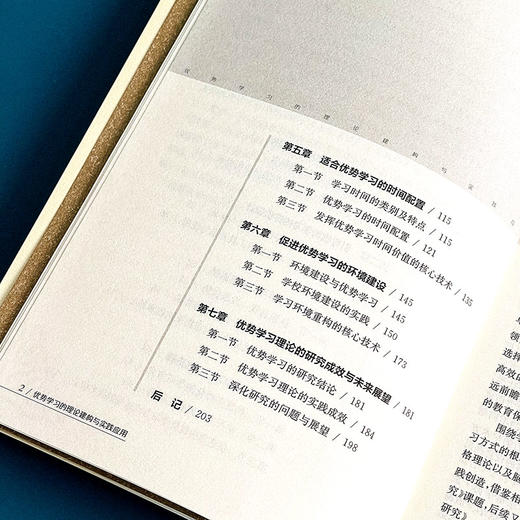 优势学习的理论建构与实践
第五章 适合优势学习的时间配置 / 115
第一节 学习时间的类别及特点 / 115
第二节 优势学习的时间配置 / 121
第三节 发挥优势学习时间价值的核心技术 / 135
第六章 促进优势学习的环境建设 / 145
第一节 环境建设与优势学习 / 145
第二节 学校环境建设的实践 / 150
第三节 学习环境重构的核心技术 / 173
第七章 优势学习理论的研究成效与未来展望 / 181
第一节 优势学习的研究结论 / 181
第二节 优势学习理论的实践成效 / 184
第三节 深化研究的问题与展望 / 198
后 记 / 203
2 / 优势学习的理论建构与实践应用
选择
高效
的教育保
围绕
习方式的根
格理论以及脑
践创造，借鉴相
究》课题，后续又
研究》